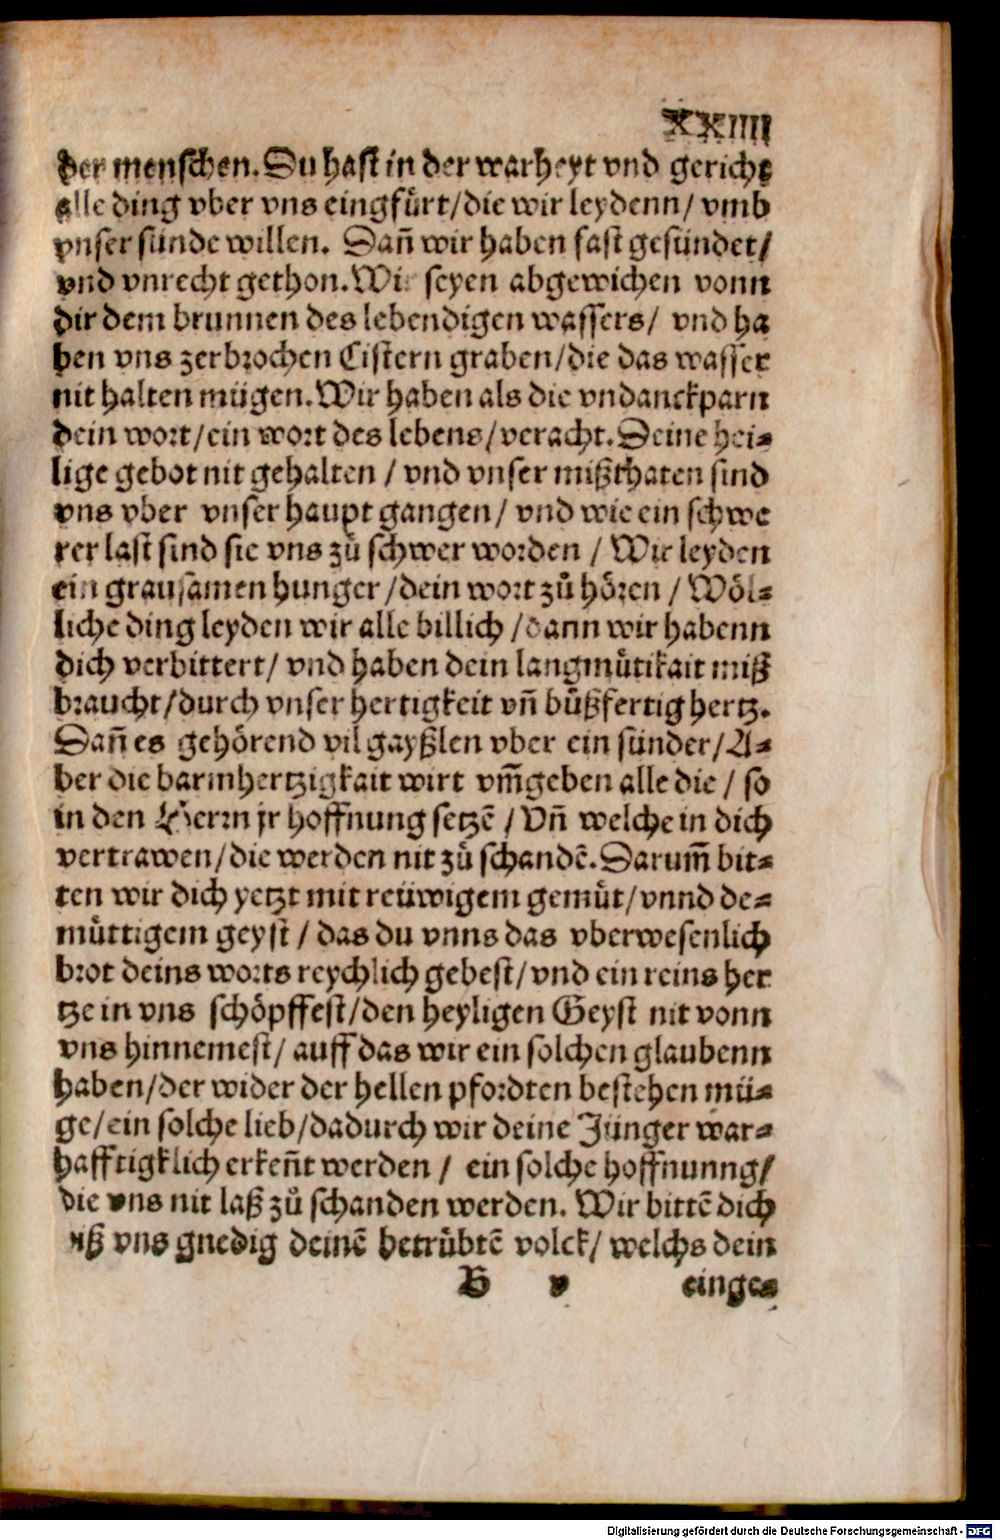 XXIIII
der menschen. Du hast in der warheyt vnd gericht
alle ding vber vns eingfürt/die wir leydenn/ vmb
vnser sünde willen. Dañ wir haben fast gesündet/
vnd vnrecht gethon. Wir seyen abgewichen vonn
dir dem brunnen des lebendigen wassers/ vnd ha
ben vns zerbrochen Cistern graben/die das wasser
nit halten mügen. Wir haben als die vndanckparn
dein wort/ein wort des lebens/veracht. Deine hei⸗
lige gebot nit gehalten / vnd vnser mißthaten sind
vns vber vnser haupt gangen/ vnd wie ein schwe
rer last sind sie vns zů schwer worden / Wir leyden
ein grausamen hunger /dein wort zů hören / Wöl⸗
liche ding leyden wir alle billich /dann wir habenn
dich verbittert/ vnd haben dein langmůtikait miß
braucht/durch vnser hertigkeit vñ bůßfertig hertz.
Dañ es gehörend vil gayßlen vber ein sünder/A⸗
ber die barmhertzigkait wirt vm̃geben alle die / so
in den Herrn jr hoffnung setzē / Vñ welche in dich
vertrawen/die werden nit zů schandē. Darum̃ bit⸗
ten wir dich yetzt mit reüwigem gemůt/vnnd de⸗
můttigem geyst / das du vnns das vberwesenlich
brot deins worts reychlich gebest/vnd ein reins her
tze in vns schöpffest/den heyligen Geyst nit vonn
vns hinnemest/ auff das wir ein solchen glaubenn
haben/der wider der hellen pfordten bestehen mü⸗
ge/ein solche lieb/dadurch wir deine Jünger war⸗
hafftigklich erkeñt werden / ein solche hoffnunng/
die vns nit laß zů schanden werden. Wir bittē dich
vns gnedig deinē betrůbtē volck/ welchs dein
B v einge⸗
Digitalisierung gefördert durch die Deutsche Forschungsgemeinschaft - DFG